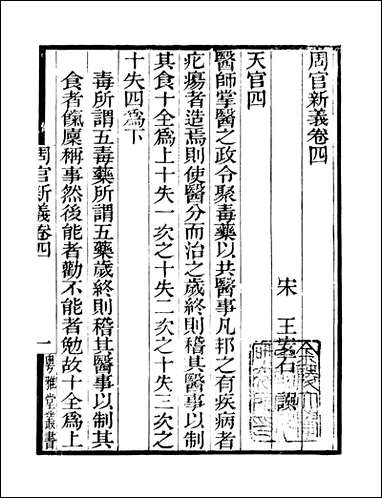 周官新義卷四
宋 王安石 譔
天官四
醫師掌醫之政令聚毒藥以共醫事凡邦之有疾病者
疕瘍者造焉則使醫分而治之歲終則稽其醫事以制
其食十全爲上十失一次之十失二次之十失三次之
十失四爲下
毒所謂五毒藥所謂五藥歲終則稽其醫事以制其
食者餼廩稱事然後能者勸不能者勉故十全爲上
周官新義卷四
一
粵雅堂叢書